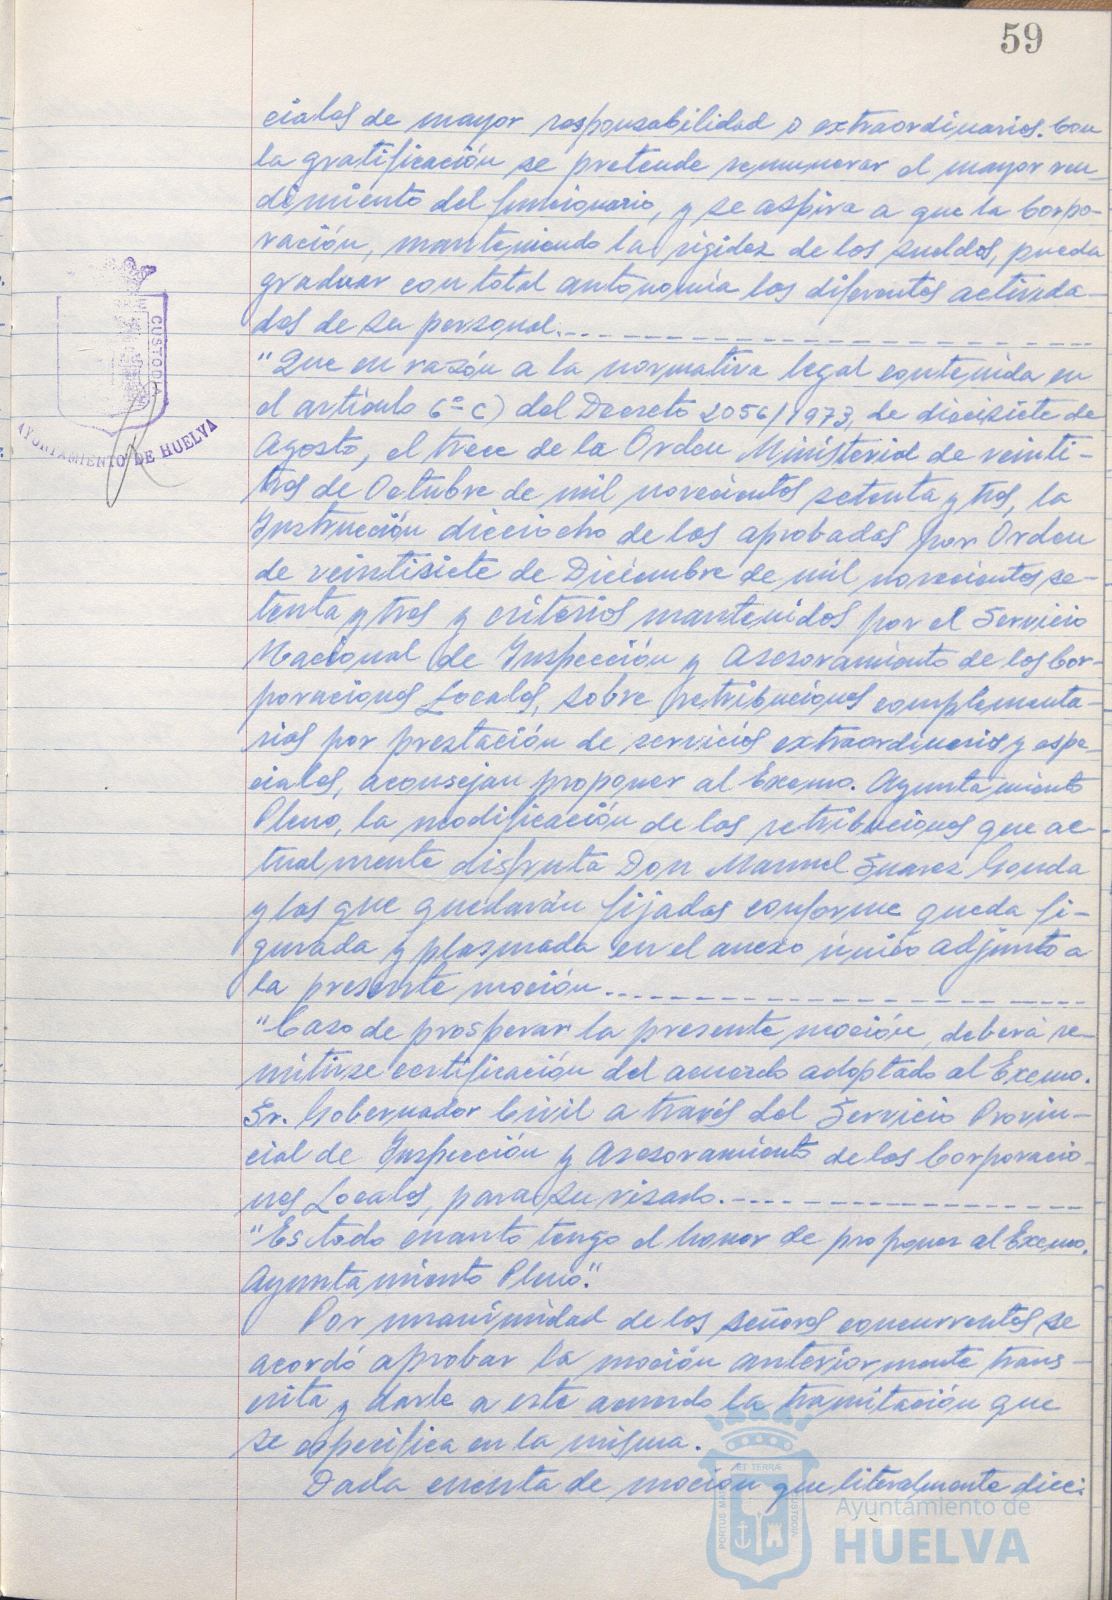 59
ciales de mayor responsabilidad o extraordinarios. Con
la gratificación se pretende remunerar el mayor ren-
dimiento del funcionario, y se aspira a que la Corpo-
ración, manteniendo la rigidez de los sueldos, pueda
graduar con total autonomía los diferentes activida-
des de su personal.
"Que en razón a la normativa legal contenida en
el artículo 6º c) del Decreto 2056/1973, de diecisiete de
Agosto, el trece de la Orden Ministerial de veinti-
tres de Octubre de mil novecientos setenta y tres, la
Instrucción dieciocho de las aprobadas por Orden
de veintisiete de Diciembre de mil novecientos se-
tenta y tres y criterios mantenidos por el Servicio
Nacional de Inspección y Asesoramiento de las Cor-
poraciones Locales, sobre retribuciones complementa-
rias por prestación de servicios extraordinarios y espe-
ciales, aconsejan proponer al Excmo. Ayuntamiento
Pleno, la modificación de las retribuciones que ac-
tualmente disfruta Don Manuel Suarez Gonda
y las que quedarán fijadas conforme queda fi-
gurada y plasmada en el anexo único adjunto a
la presente moción.
"Caso de prosperar la presente moción, deberá re-
mitirse certificación del acuerdo adoptado al Excmo.
Sr. Gobernador Civil a través del Servicio Provin-
cial de Inspección y Asesoramiento de las Corporacio-
nes Locales, para su visado.
"Es todo cuanto tengo el honor de proponer al Excmo.
Ayuntamiento Pleno".
Por unanimidad de los señores concurrentes, se
acordó aprobar la moción anteriormente trans-
crita y darle a este acuerdo la tramitación que
se especifica en la misma.
Dada cuenta de moción que literalmente dice:
CUSTODIA
AYUNTAMIENTO DE HUELVA
PORTUS MARIS ET TERRAE CUSTODIA
Ayuntamiento de
HUELVA